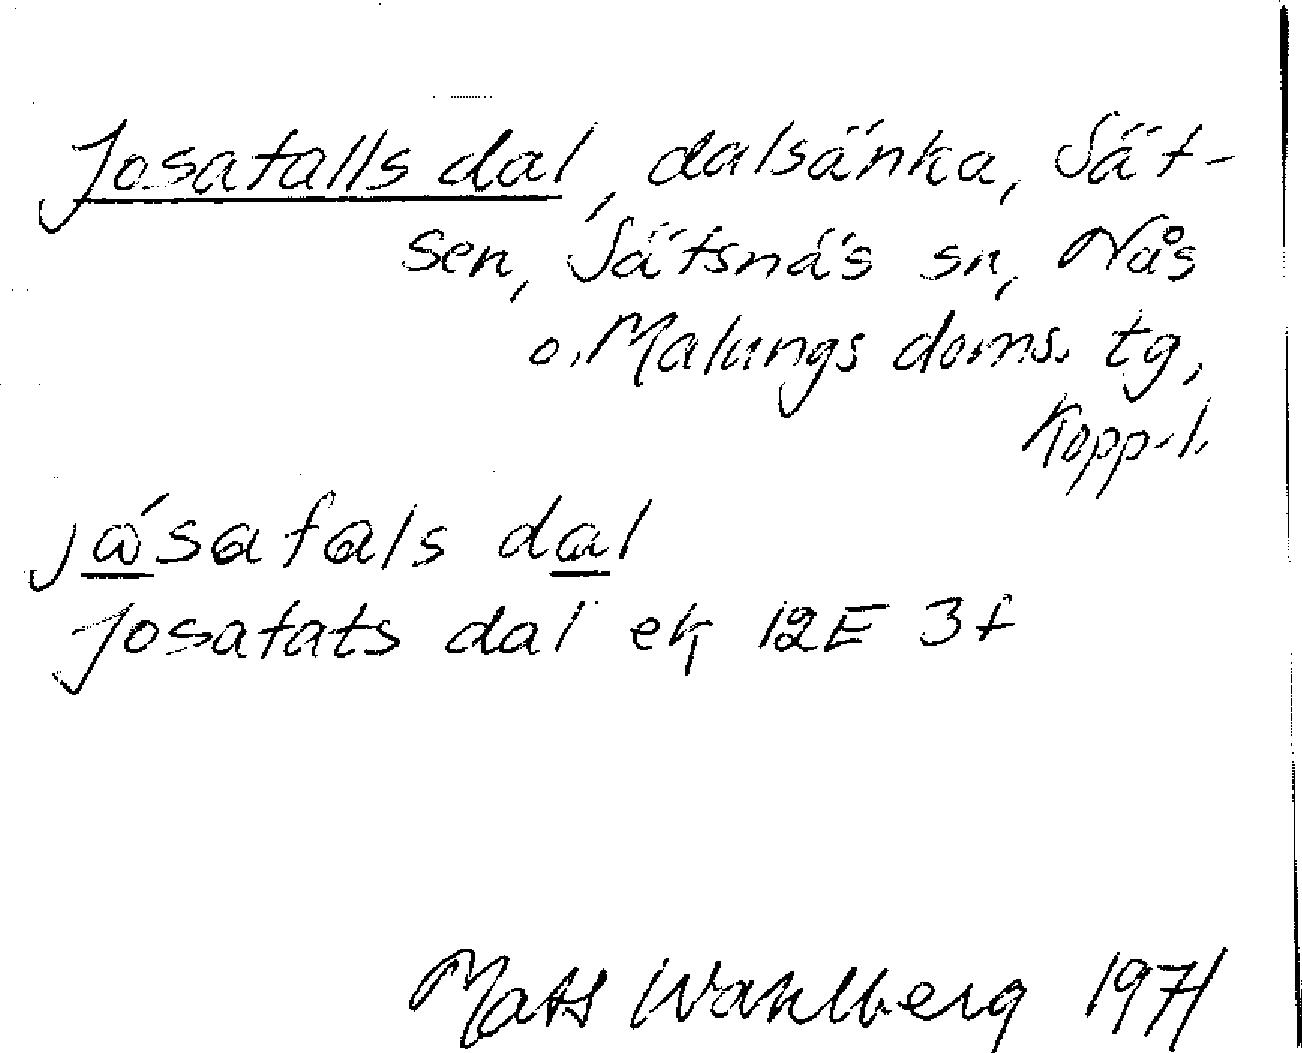 Josafalls dal, dalsänka, Säf-
sen, Säfsnäs sn, Nås
o. Malungs doms. tg,
Kopp. l.
jásafals dal
Josafats dal ek 12E 3f
Mats Wahlberg 1971